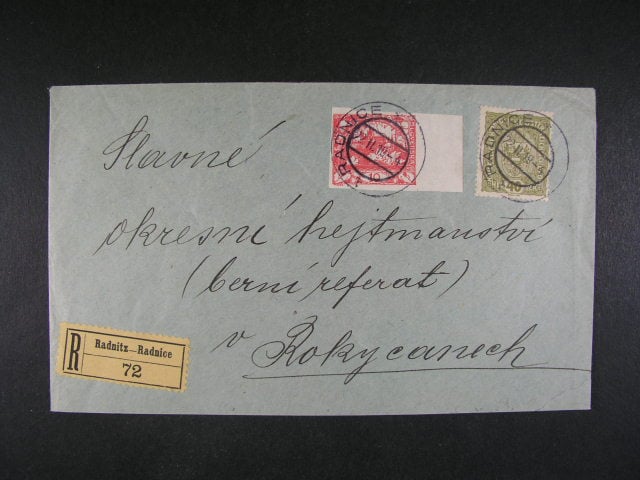 RADNICE
RADNICE
40
Slavné
okresní hejtmanství
(berní referat)
v Rokycanech
R
Radnitz—Radnice
72